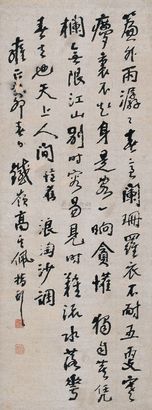 簾外雨潺〻春意闌珊羅衣不耐五更寒
夢裏不知身是客一晌貪懽獨自莫凭
欄無限江山別時容易見時難流水落花
春去也天上人間 浪淘沙調
雍正 卯春日鐵嶺高其佩指